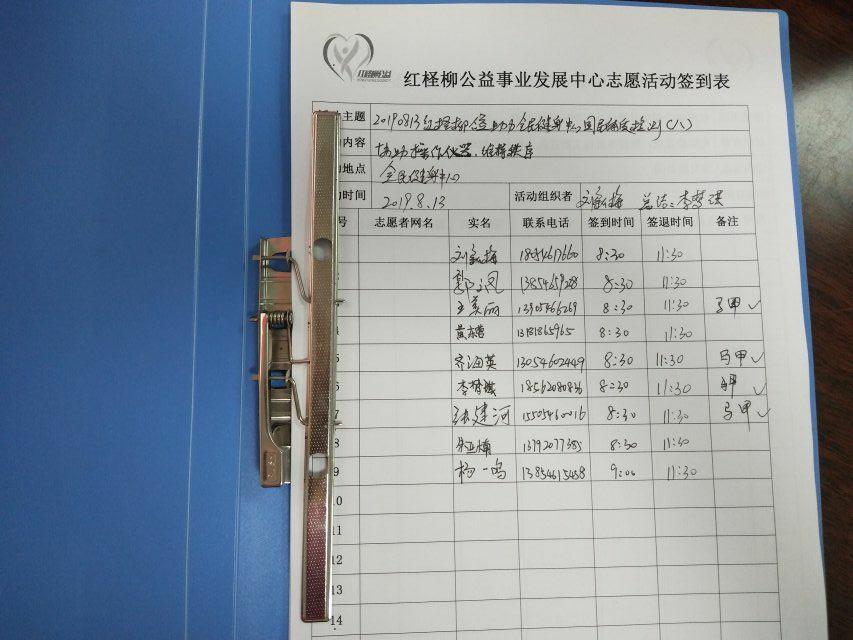 红柽柳公益事业发展中心志愿活动签到表
主题 20190813红柽柳 助力全民健身中心国民体质检测(八)
内容 协助操作仪器、维持秩序
地点 全民健身中心
时间 2019.8.13 活动组织者 总结：李梦洪
号 志愿者网名 实名 联系电话 签到时间 签退时间 备注
8:30 11:30
8:30 11:30
王美丽 13905466269 8:30 11:30 马甲✓
4 13181865965 8:30 11:30
5 齐海英 13054602449 8:30 11:30 马甲✓
6 18562080836 8:30 11:30 马甲✓
7 张建河 15505460016 8:30 11:30 马甲✓
8 13792077385 8:30 11:30
9 杨一鸣 13854615458 9:00 11:30
10
11
12
13
14